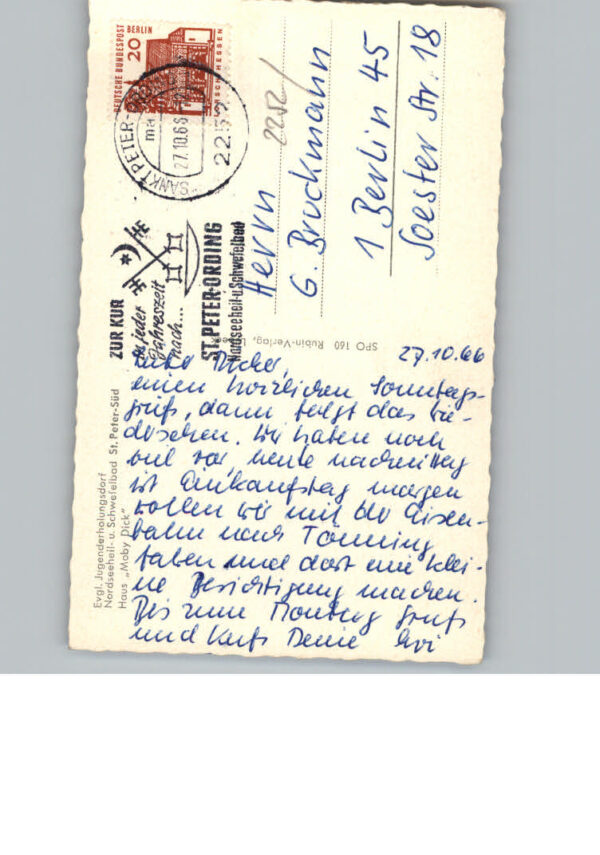 DEUTSCHE BUNDESPOST BERLIN
20
HESSEN
SANKT PETER-ORDING
27.10.66
2252
2252
ZUR KUR
zu jeder
Jahreszeit
nach...
ST. PETER-ORDING
Nordseeheil-u. Schwefelbad
Herrn
G. Bruckmann
1 Berlin 45
Soester Str. 18
SPO 160 Rubin-Verlag,
Evgl. Jugenderholungsdorf
Nordseeheil- u. Schwefelbad St. Peter-Süd
Haus „Moby Dick"
27.10.66
einen herzlichen Sonntags-
gruß, dann folgt das Wie-
dersehen. Wir haben noch
viel vor, heute nachmittag
ist Einkaufstag morgen
wollen wir mit der Eisen-
bahn nach Tönning
fahren und dort eine klei-
ne Besichtigung machen.
Bis zum Montag Gruß
und Kuß Deine